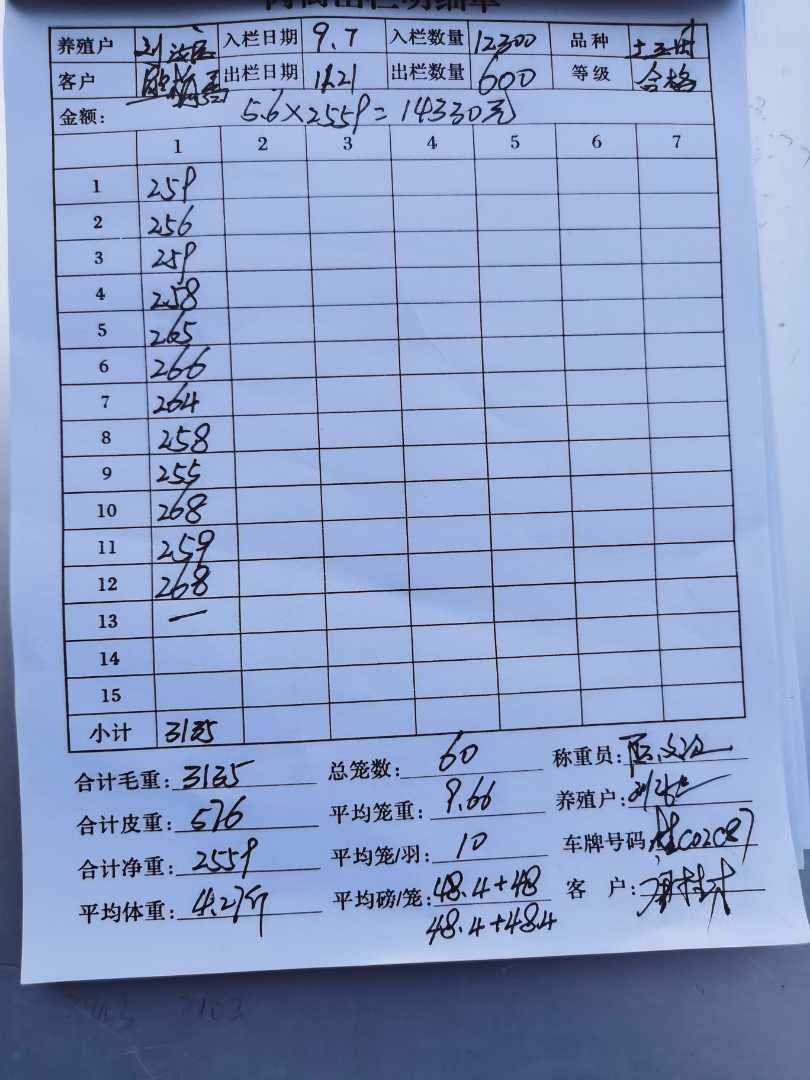 养殖户 入栏日期 9.7 入栏数量 12300 品种
客户 出栏日期 11.21 出栏数量 600 等级 合格
金额: 5.6×2559=14330元
1 2 3 4 5 6 7
1 259
2 256
3 259
4 258
5 265
6 266
7 264
8 258
9 255
10 268
11 259
12 268
13 一
14
15
小计 3135
合计毛重: 3135 总笼数: 60 称重员:
合计皮重: 576 平均笼重: 9.66 养殖户:
合计净重: 2559 平均笼/羽: 10 车牌号码:
平均体重: 4.27斤 平均磅/笼: 48.4+48 客 户:
48.4+48.4